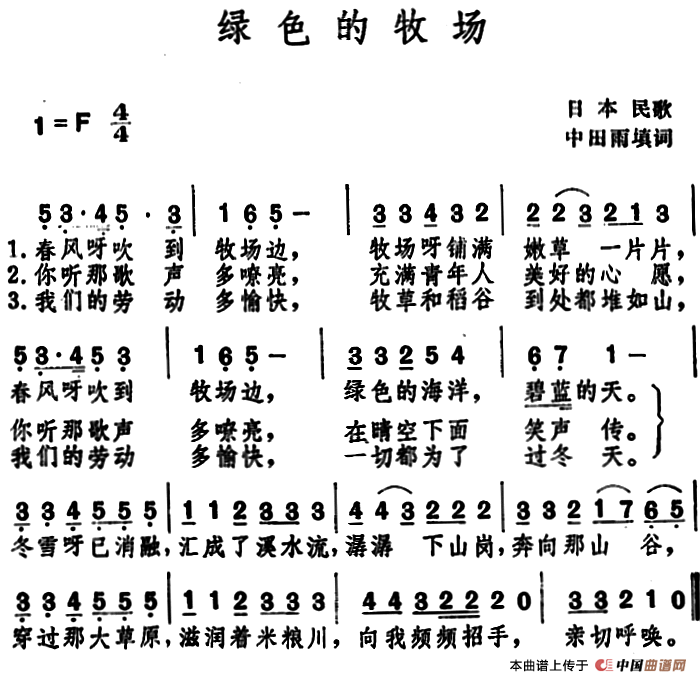 绿色的牧场
1=F 4/4
日本 民歌
中田雨填词
5 3·4 5·3 | 1 6 5 — | 3 3 4 3 2 | 2 2 3 2 1 3 |
1.春风呀吹 到 牧场边, 牧场呀铺满 嫩草 一片片,
2.你听那歌 声 多嘹亮, 充满青年人 美好的心 愿,
3.我们的劳 动 多愉快, 牧草和稻谷 到处都堆如山,
5 3·4 5 3 | 1 6 5 — | 3 3 2 5 4 | 6 7 1 —
春风呀吹到 牧场边, 绿色的海洋, 碧蓝的天。
你听那歌声 多嘹亮, 在晴空下面 笑声 传。
我们的劳动 多愉快, 一切都为了 过冬 天。
3 3 4 5 5 5 | 1 1 2 3 3 3 | 4 4 3 2 2 2 | 3 3 2 1 7 6 5 |
冬雪呀已消融, 汇成了溪水流, 潺潺 下山岗, 奔向那山 谷,
3 3 4 5 5 5 | 1 1 2 3 3 3 | 4 4 3 2 2 2 0 | 3 3 2 1 0
穿过那大草原, 滋润着米粮川, 向我频频招手, 亲切呼唤。
本曲谱上传于 中国曲谱网